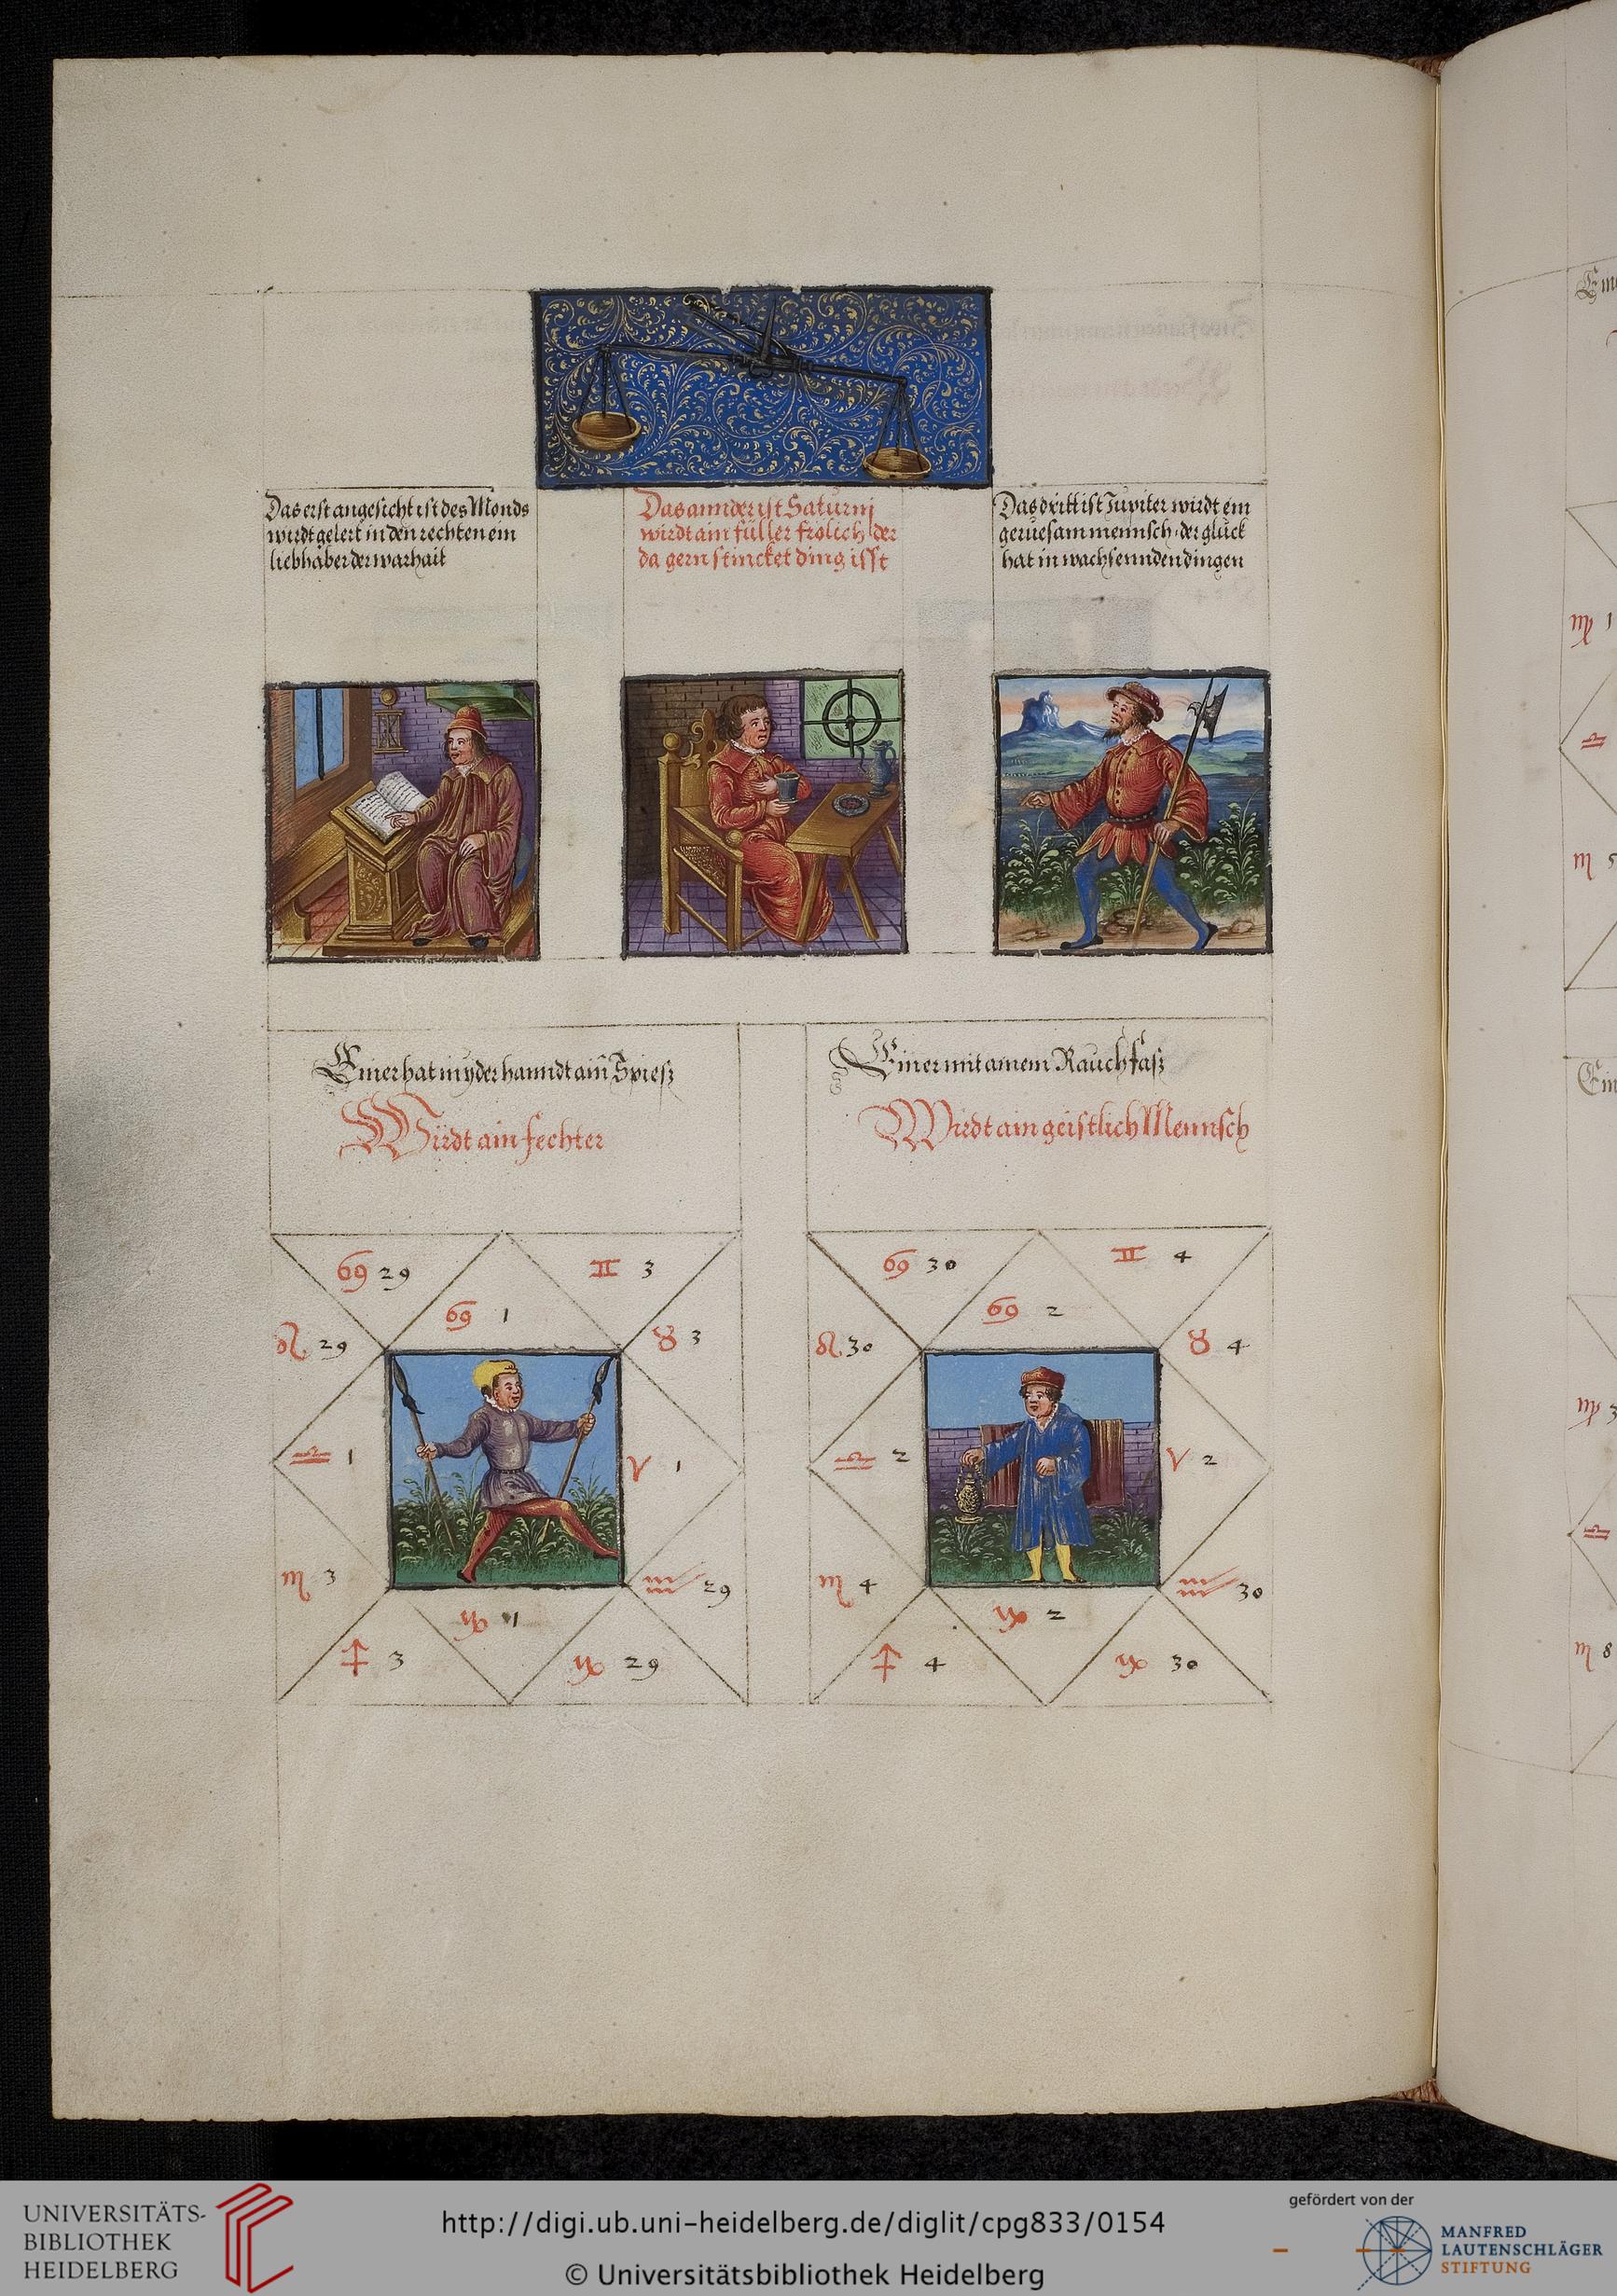 Das erst angesicht ist des Monds
wirdt gelert in den rechten ein
liebhaber der warhait
Das annder ist Saturnj
wirdt ain füller frölich der
da gern stincket ding isst
Das dritt ist Jupiter wirdt ein
geruesam mennsch der glück
hat in wachsennden dingen
Einer hat in yder hanndt ain Spiesz
Wirdt ain fechter
Einer mit ainem Rauchfasz
Wirdt ain geistlich Mennsch
♋ 29
♊ 3
♋ 1
♌ 29
♉ 3
♎ 1
♈ 1
♏ 3
♒ 29
♑ 1
♐ 3
♑ 29
♋ 30
♊ 4
♋ 2
♌ 30
♉ 4
♎ 2
♈ 2
♏ 4
♒ 30
♑ 2
♐ 4
♑ 30
♍ 1
♎
♏ 5
♍ 3
♎
♏ 8
UNIVERSITÄTS-
BIBLIOTHEK
HEIDELBERG
http://digi.ub.uni-heidelberg.de/diglit/cpg833/0154
© Universitätsbibliothek Heidelberg
gefördert von der
MANFRED
LAUTENSCHLÄGER
STIFTUNG